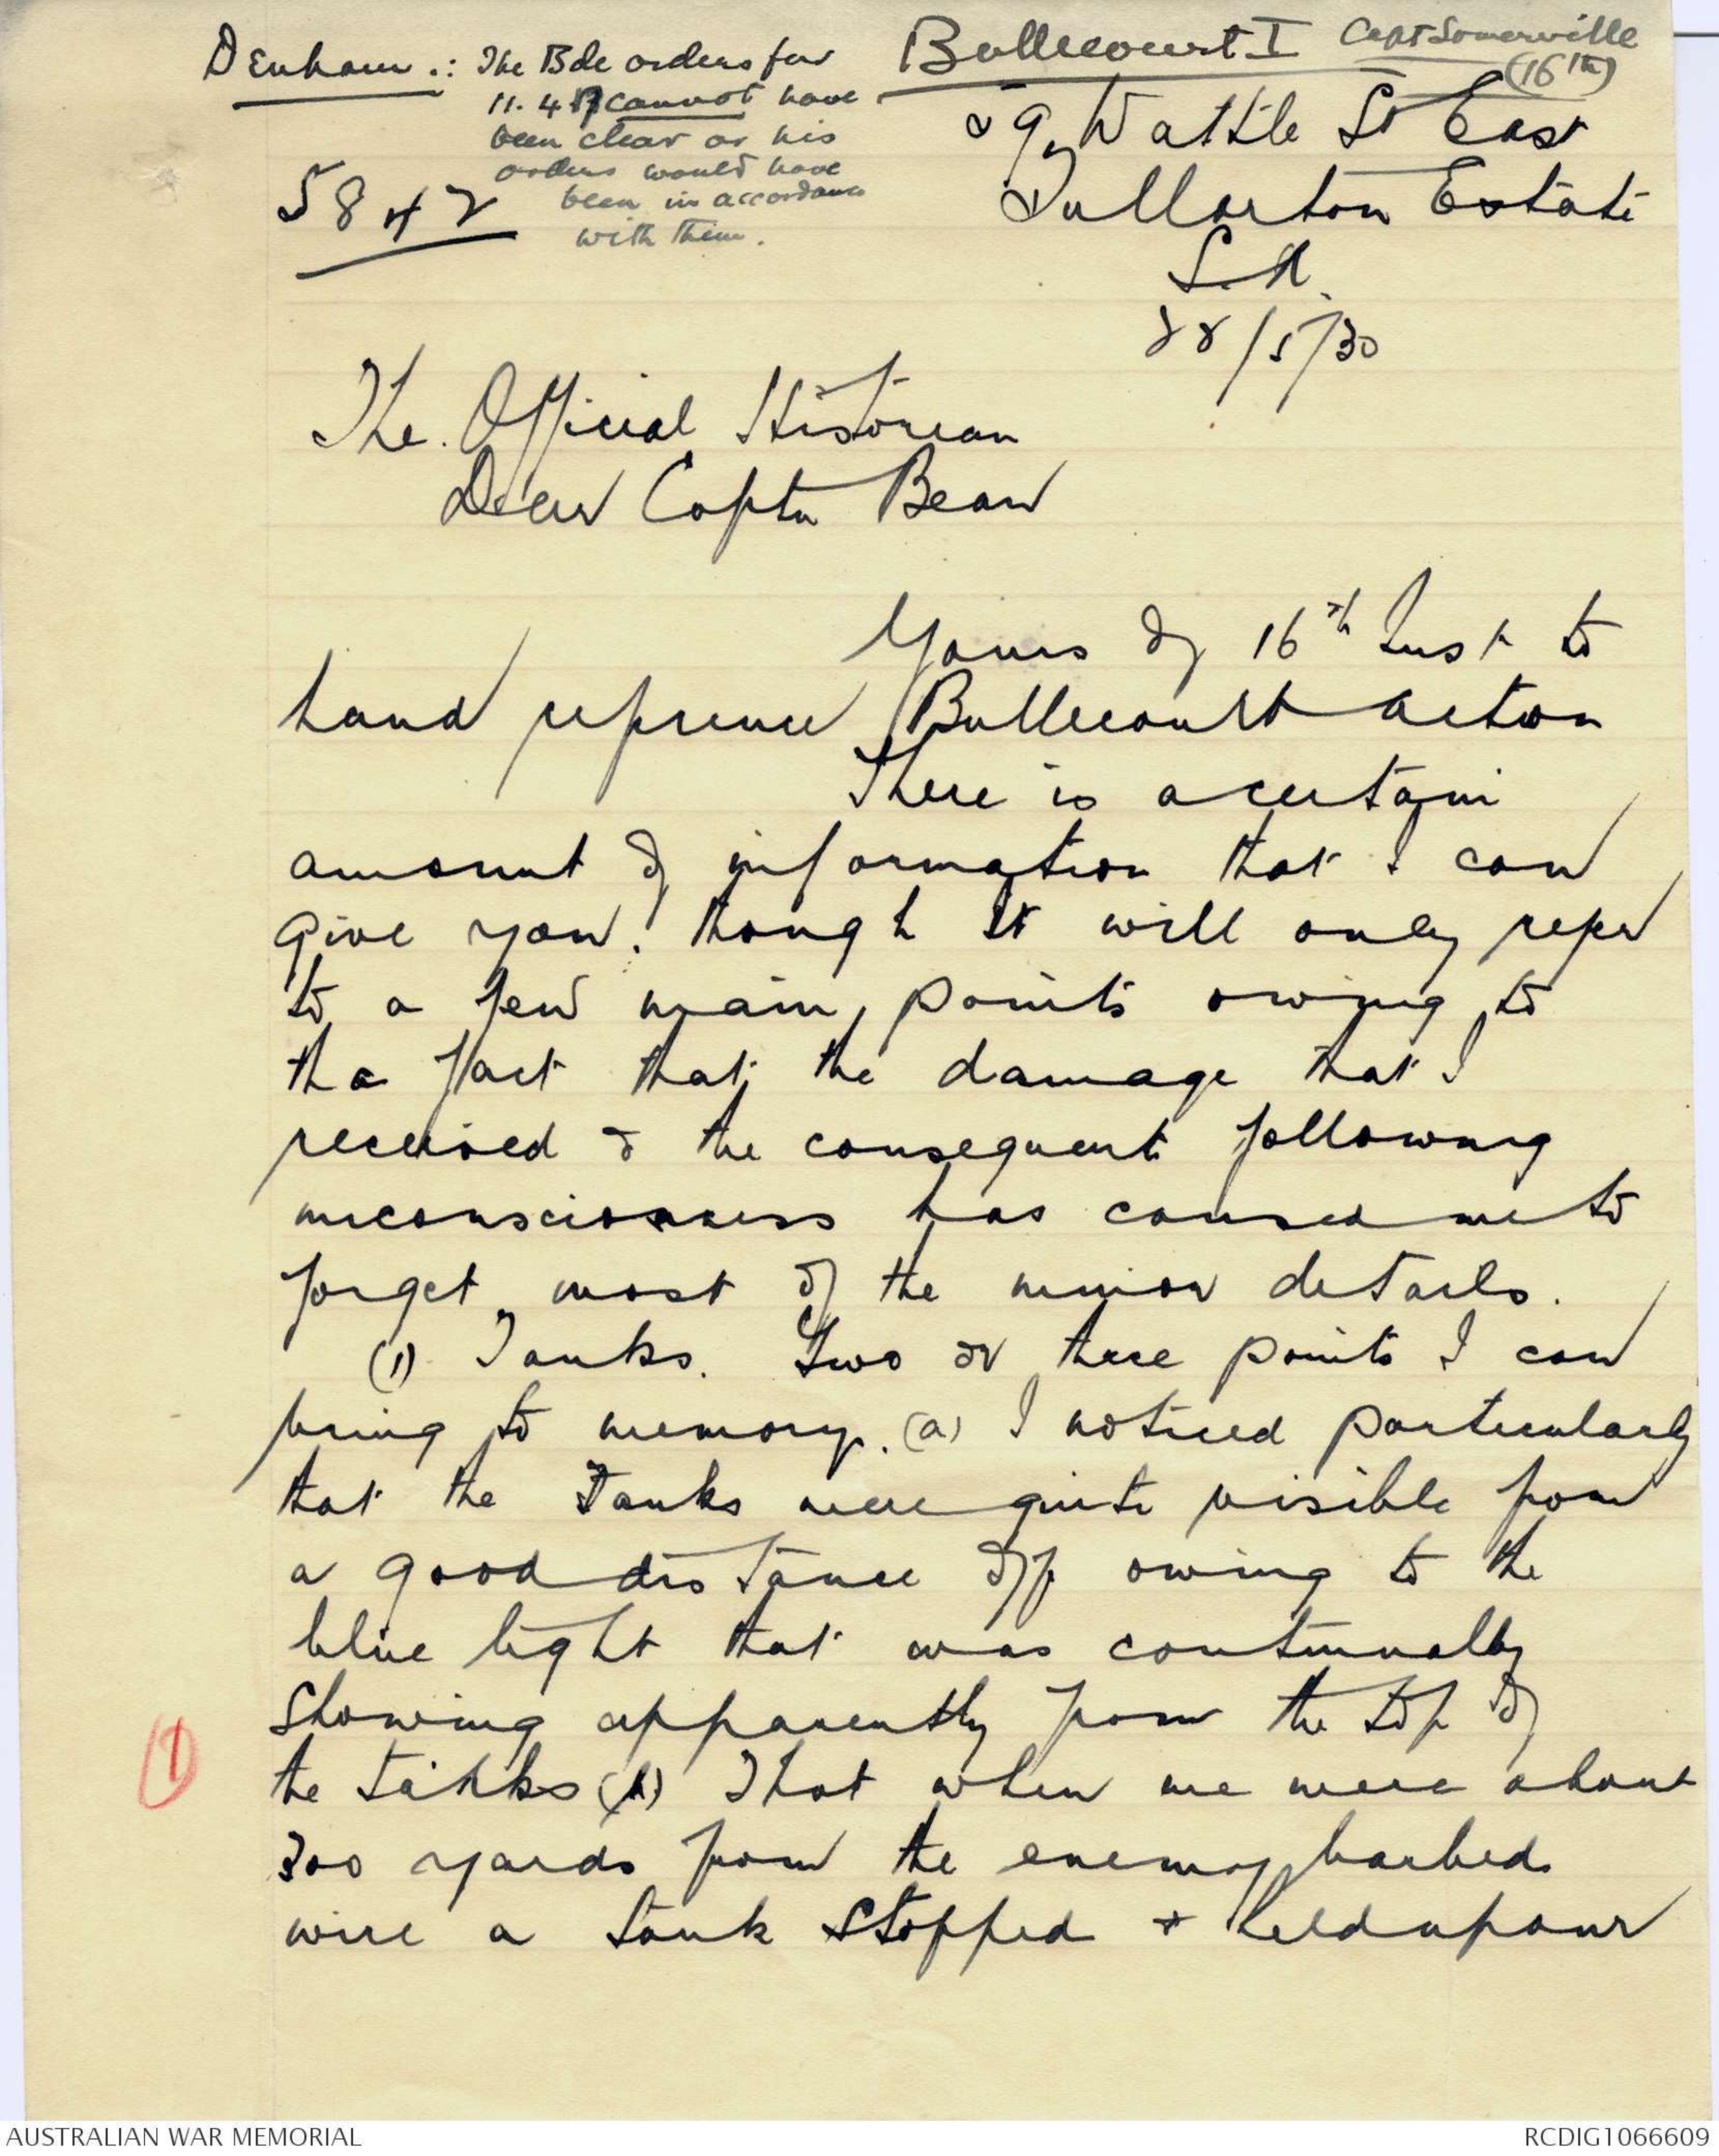 Denham :: The Bde orders for
11.4.17 cannot have
been clear or his
orders would have
been in accordance
with them.
Bullecourt I Capt Somerville
(16th)
5842
29 Wattle St East
Fullarton Estate
S.A.
28/5/30
The Official Historian
Dear Captn Bean
Yours of 16th Inst to
hand reference Bullecourt action
There is a certain
amount of information that I can
give you, though it will only refer
to a few main points owing to
the fact that the damage that I
received & the consequent following
unconsciousness has caused me to
forget most of the minor details.
(1) Tanks. Two or three points I can
bring to memory. (a) I noticed particularly
that the Tanks were quite visible from
a good distance off owing to the
blue light that was continually
showing apparently from the top of
the tanks (b) That when we were about
300 yards from the enemy barbed
wire a tank stopped & held up our
1
AUSTRALIAN WAR MEMORIAL
RCDIG1066609